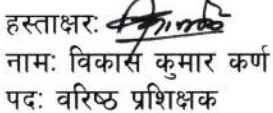 हस्ताक्षर:
नाम: विकास कुमार कर्ण
पद: वरिष्ठ प्रशिक्षक